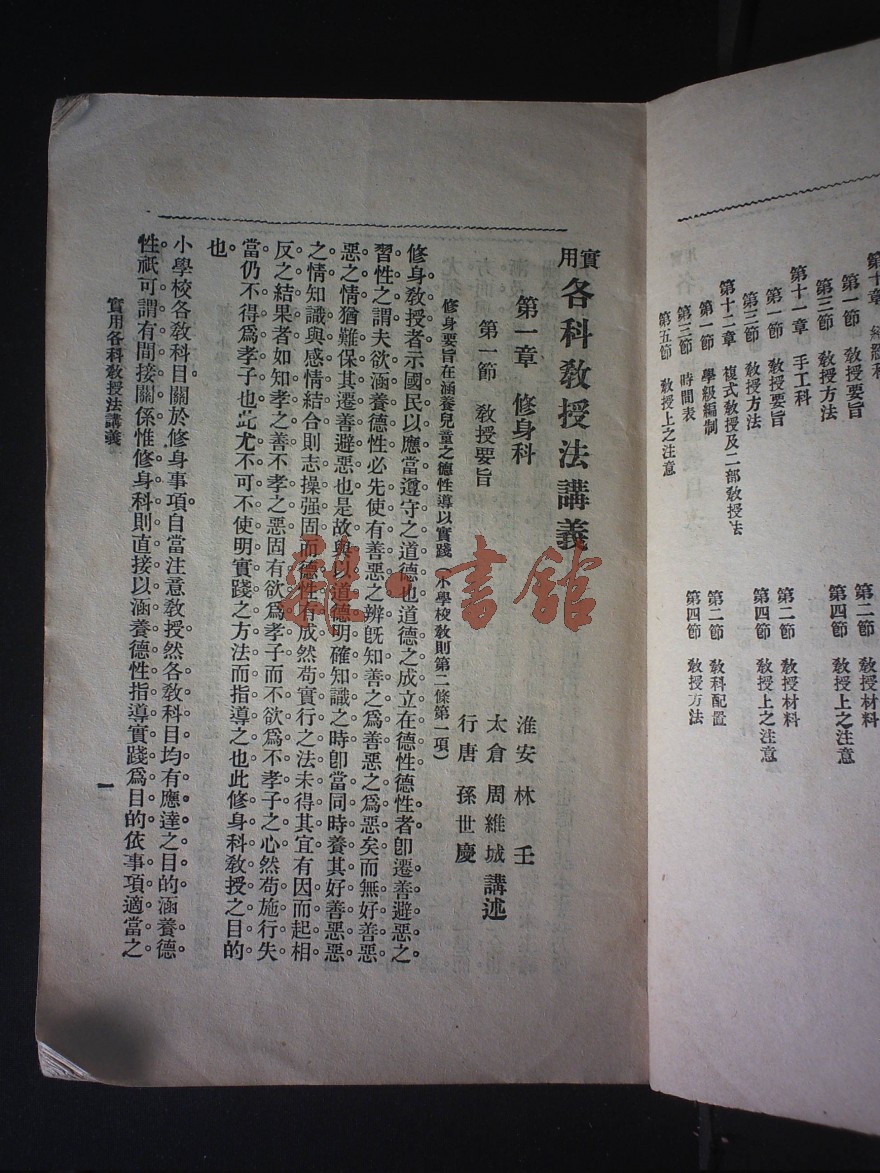 第十章
第一節 教授要旨
第三節 教授方法
第十一章 手工科
第一節 教授要旨
第三節 教授方法
第十二章 複式教授及二部教授法
第一節 學級編制
第三節 時間表
第五節 教授上之注意
第二節 教授材料
第四節 教授上之注意
第二節 教授材料
第四節 教授上之注意
第二節 教科配置
第四節 教授方法
實用各科教授法講義
淮安 林 壬
太倉 周維城 講述
行唐 孫世慶
第一章 修身科
第一節 教授要旨
修身要旨在涵養兒童之德性導以實踐(小學校教則第二條第一項)
修身教授者示國民以應當遵守之道德也道德之成立在德性德性者卽遷善避惡之
習性之謂夫欲涵養德性必先使有善惡之辨旣知善之爲善惡之爲惡矣而無好善惡
惡之情猶難保其遷善避惡也是故與以道德明確知識之時卽當同時養其好善惡惡
之情知識與感情結合則志操强固而德性有成然苟實行之法未得其宜有因而起相
反之結果者如知孝之善不孝之惡固有欲爲孝子而不欲爲不孝子之心然苟施行失
當仍不得爲孝子也此尤不可不使明實踐之方法而指導之也此修身科教授之目的
也
小學校各教科目關於修身事項自當注意教授然各教科目均有應達之目的涵養德
性祇可謂有間接關係惟修身科則直接以涵養德性指導實踐爲目的依事項適當之
實用各科教授法講義
一
雜·書館